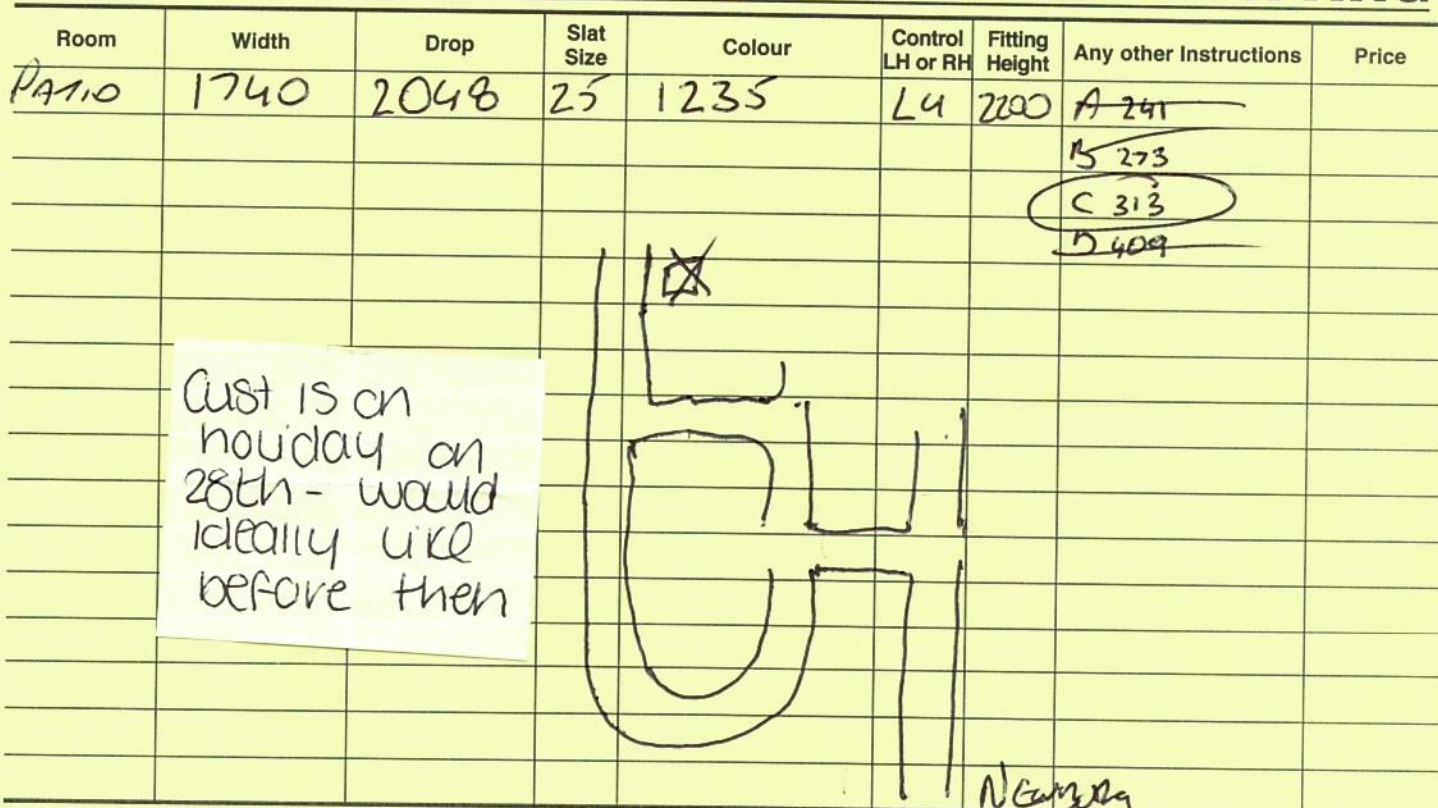 Room Width Drop Slat Size Colour Control LH or RH Fitting Height Any other Instructions Price
PATIO 1740 2048 25 1235 LH 2200 A 241
B 273
C 313
D 409
Cust is on
holiday on
28th - would
ideally like
before then